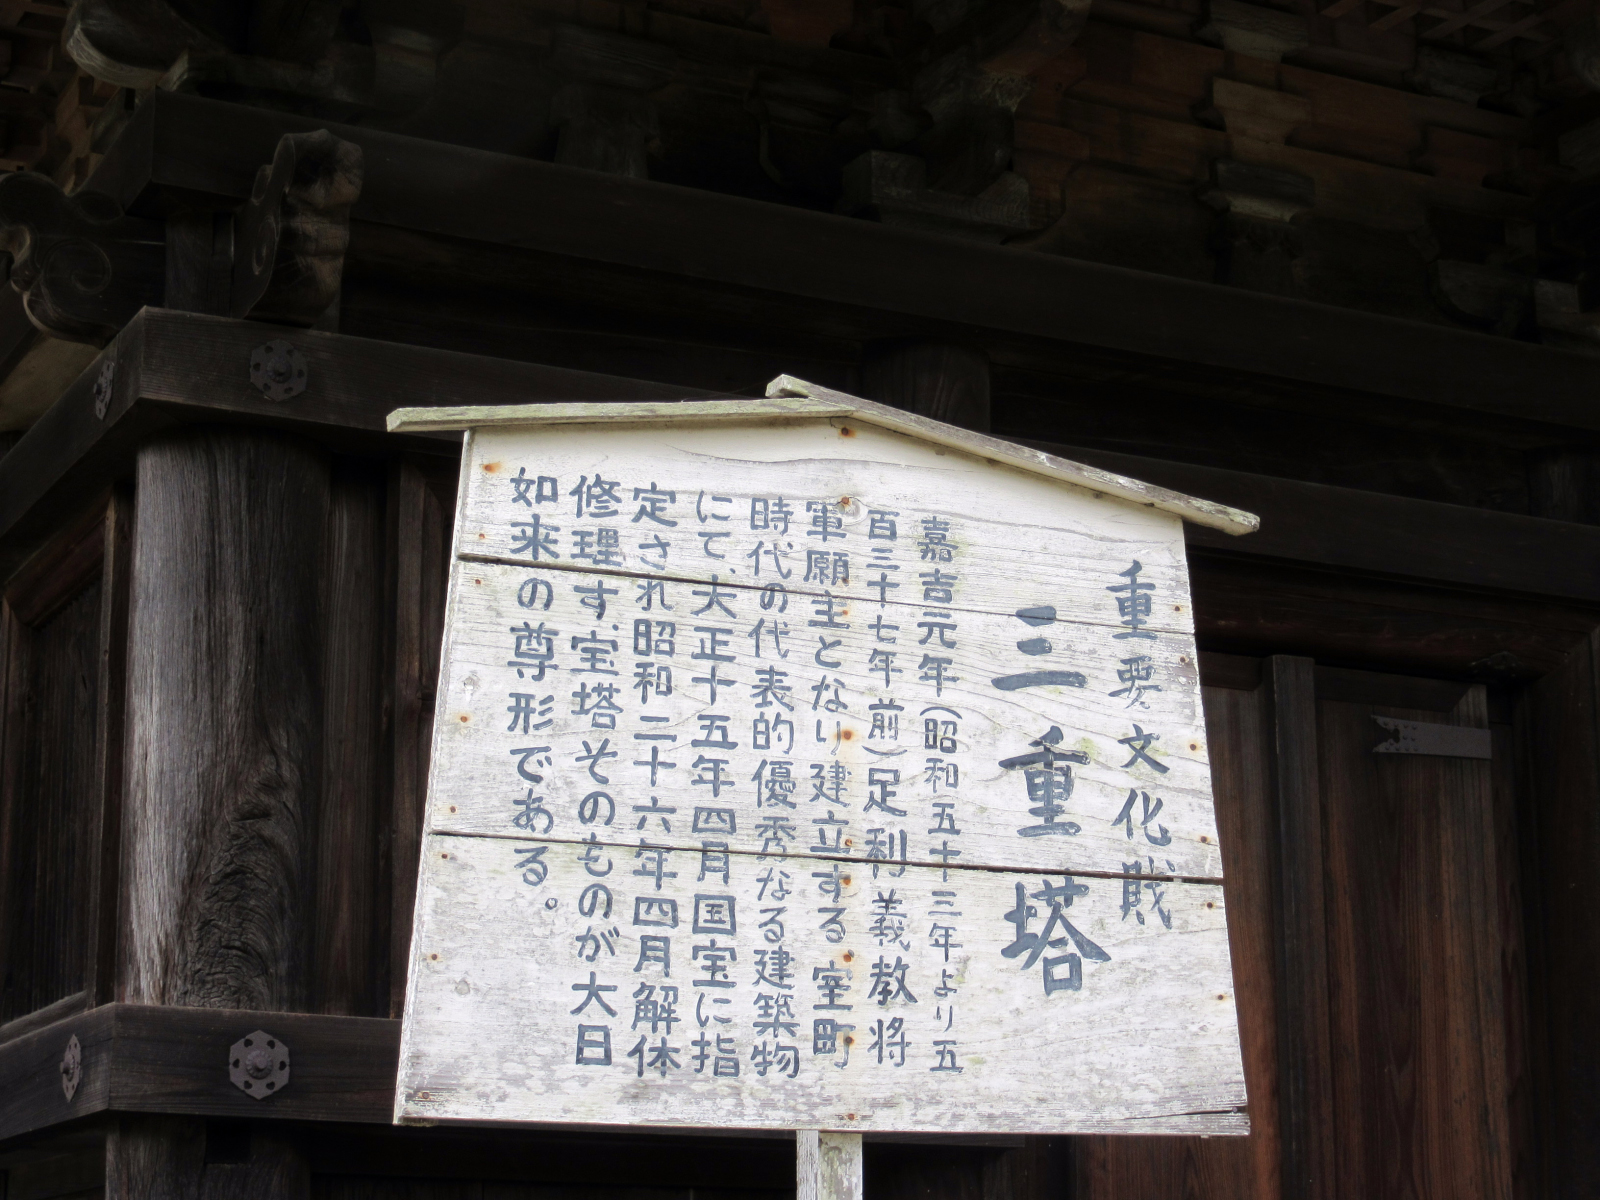 重要文化財
三重塔
嘉吉元年(昭和五十三年より五
百三十七年前)足利義教将
軍願主となり建立する室町
時代の代表的優秀なる建築物
にて、大正十五年四月国宝に指
定され昭和二十六年四月解体
修理す、宝塔そのものが大日
如来の尊形である。